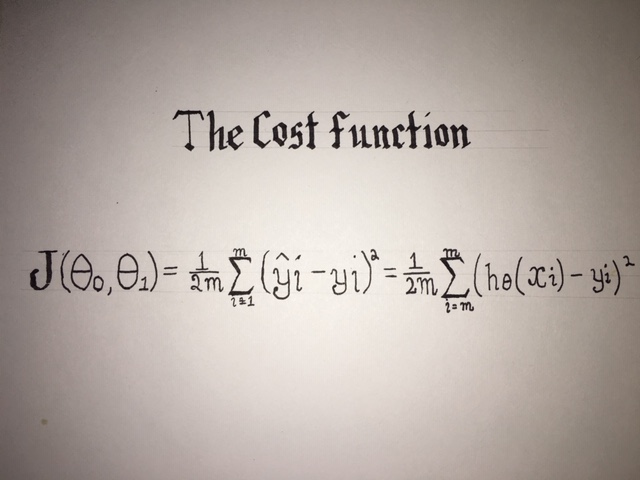 The Cost Function
J(θ₀,θ₁)= 1/2m m∑i=1 (ŷi-yi)² = 1/2m m∑i=m (hθ(xi)-yi)²